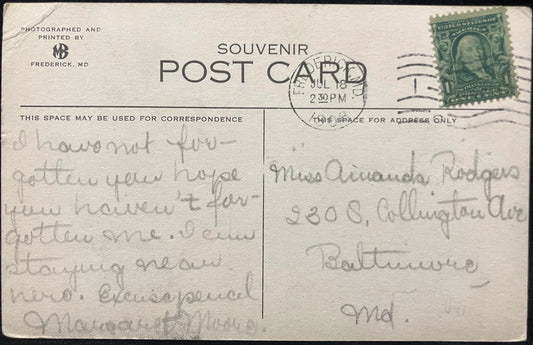 PHOTOGRAPHED AND
PRINTED BY
MB
FREDERICK, MD
SOUVENIR
POST CARD
FREDERICK, MD.
JUL 18
230 PM
UNITED STATES OF
AMERICA
1
THIS SPACE MAY BE USED FOR CORRESPONDENCE
THIS SPACE FOR ADDRESS ONLY
I have not for-
gotten you hope
you haven't for-
gotten me. I am
staying near
here. Excuse pencil
Margaret Moore.
Miss Amanda Rodgers
230 S. Collington Ave
Baltimore
Md.